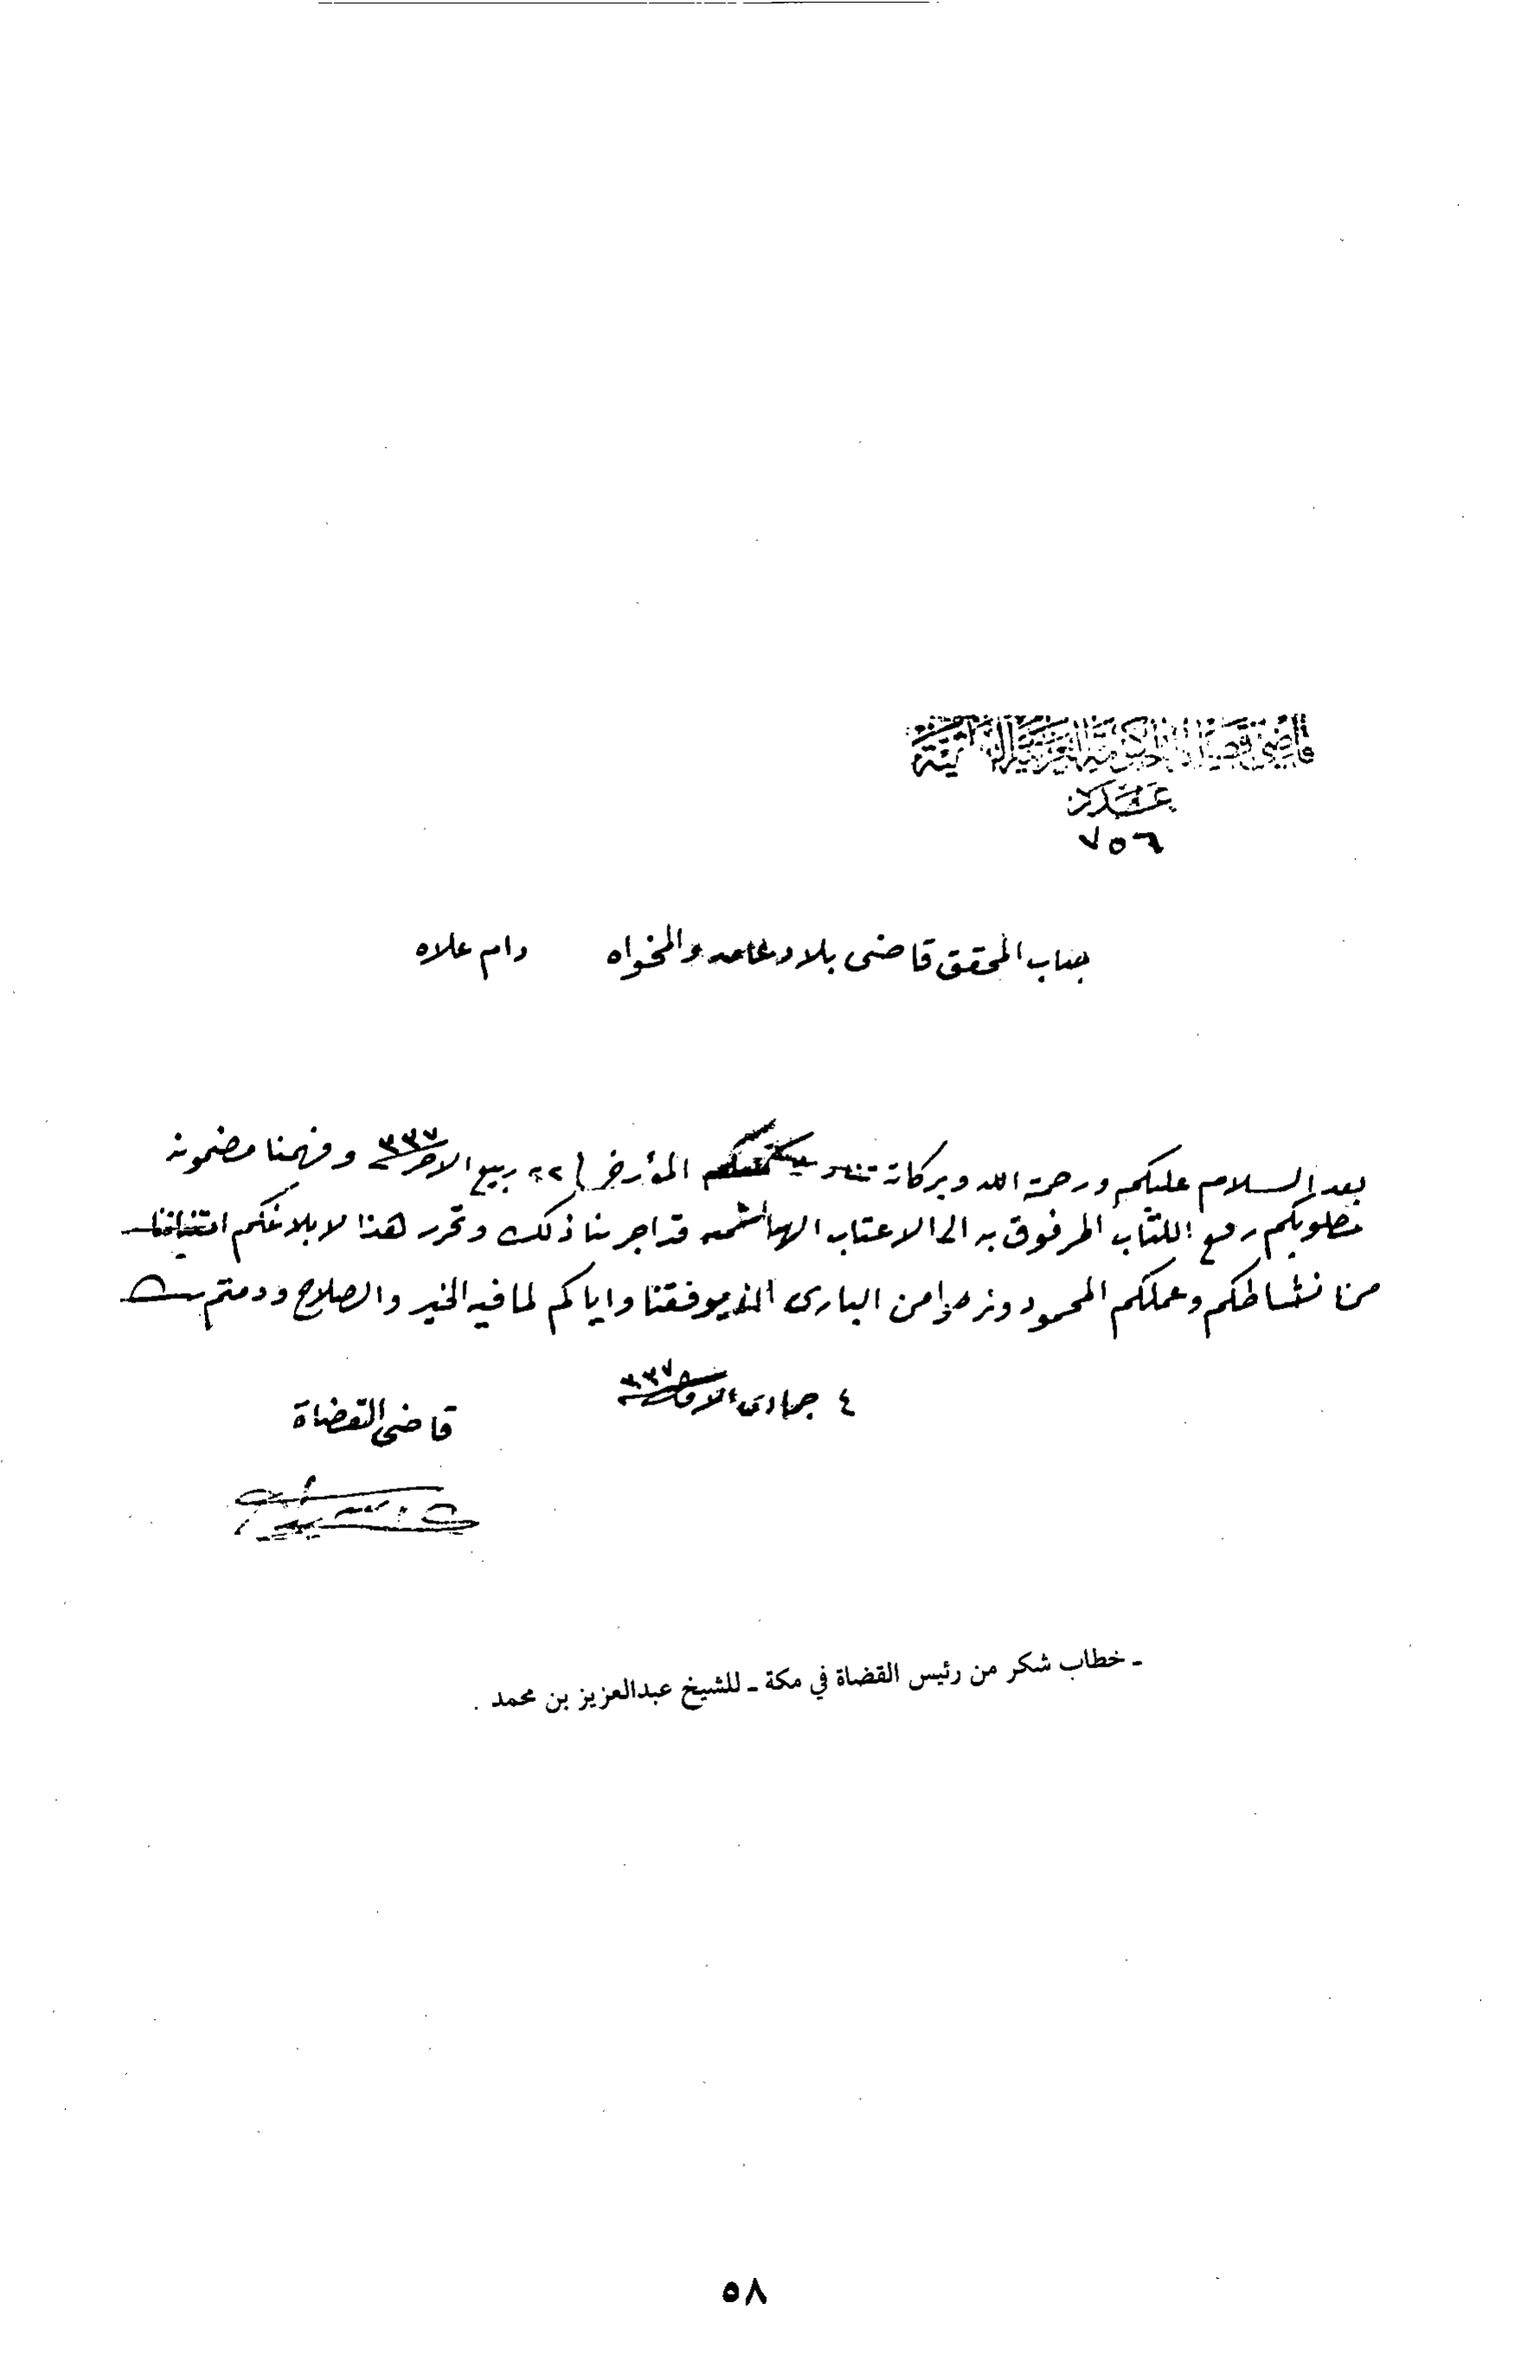 قاضي قضاة الحكومة العربية الهاشمية
عدد
٧٥٦
جناب المحقق قاضى بلاد غامد والمخواه دام علاه
بعد السلام عليكم ورحمة الله وبركاته المؤرخ ٢٢ ربيع الاخر ٣٣٧ وفهمنا مضمونه
مطلوبكم رفع الكتاب المرفوق به الى الاعتاب الهاشميه قد اجرينا ذلك وتحرر هذا لابلاغكم امتناننا
من نشاطكم وعملكم المحمود ونرجوا من البارى ان يوفقنا واياكم لما فيه الخير والصلاح ودمتم
٤ جمادى الاولى ٣٣٧
قاضى القضاة
ـ خطاب شكر من رئيس القضاة في مكة ـ للشيخ عبدالعزيز بن محمد .
٥٨